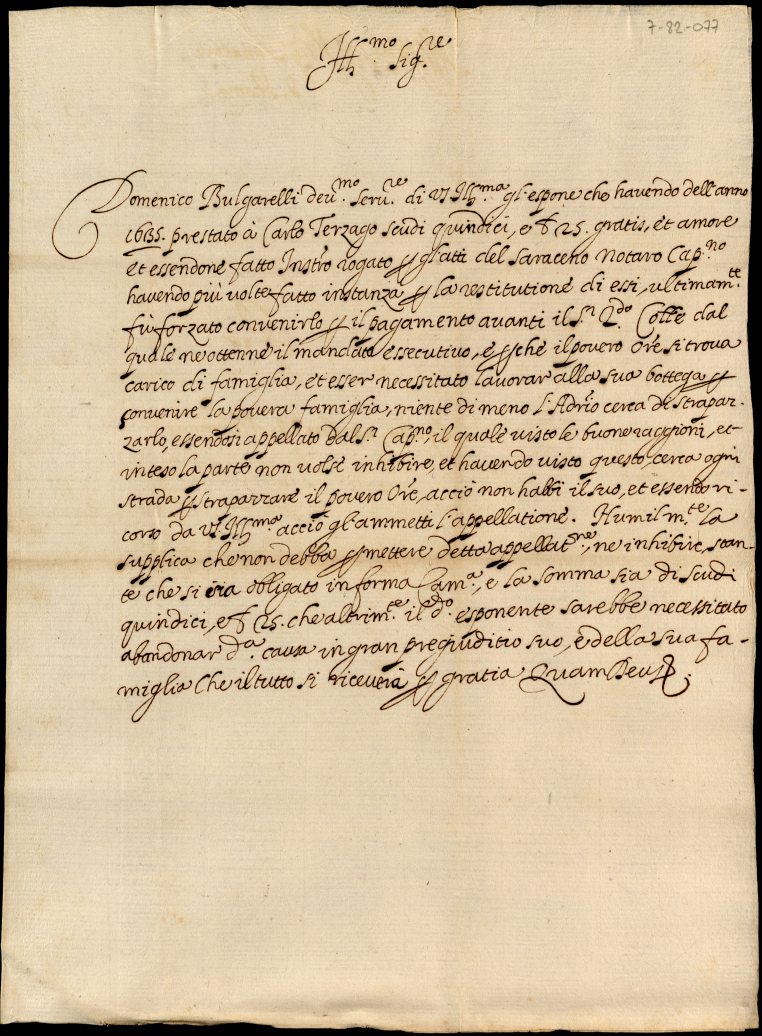 7-82-077
Ill.mo Sig.re
Domenico Bulgarelli deu.mo seru.re di VS Ill.ma gl'espone che havendo dell'anno
1635. prestato à Carlo Terzago scudi quindici, e ₰ 25. gratis, et amore
et essendone fatto Instro rogato p gl'atti del Saraceno Notaro Cap.no
havendo più volte fatto instanza p la restitutione di essi, ultimam.te
fù forzato convenirlo p il pagamento avanti il S.r Q.do Colle dal
quale ne ottenne il mandato essecutivo, e p che il povero Ore si trova
carico di famiglia, et esser necessitato lavorar alla sua bottega p
convenire la povera famiglia, niente di meno l'Adrio cerca di strapar-
zarlo, essendosi appellato dal S.r Cap.no, il quale visto le buone raggioni, et
inteso la parte non volse inhibire, et havendo visto questo, cerca ogni
strada p straparzare il povero Ore, acciò non habbi il suo, et essendo ri-
corso da VS Ill.ma acciò gl'ammetti l'appellatione. Humilm.te la
supplica che non debba pmettere detta appellat.ne, ne inhibire, stan-
te che si sia obligato in forma Cam.a, e la somma sia di scudi
quindici, e ₰ 25. che altrim.te il d.o esponente sarebbe necessitato
abandonar d.a causa in gran pregiuditio suo, e della sua fa-
miglia Che il tutto si riceverà p gratia Quam Deus